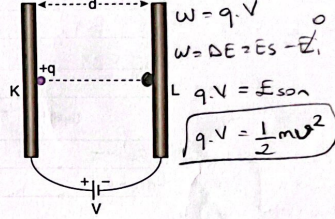 d
+q
K
L
+ -
V
W = q.V
0
W = ΔE = Es - Ei
q.V = Eson
q.V = 1/2 mv²